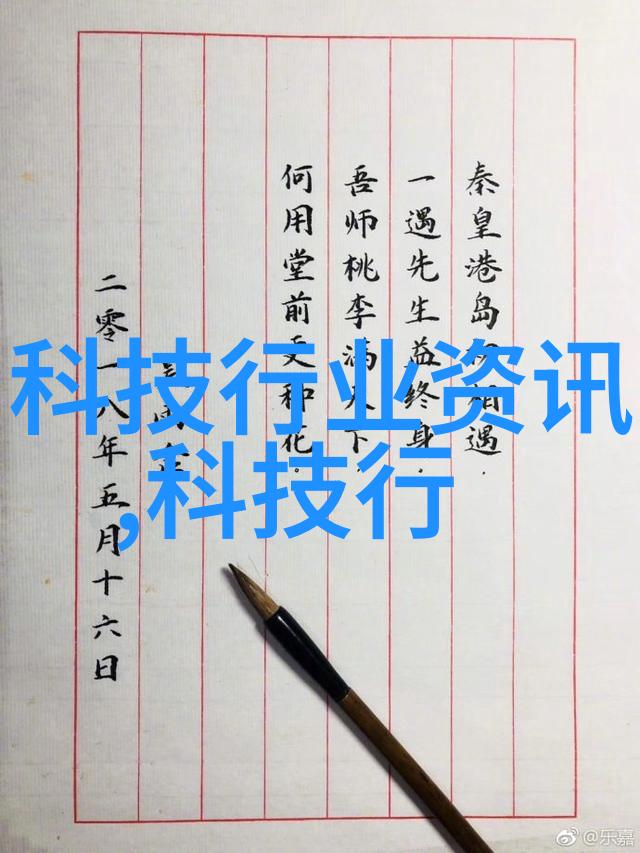 秦皇港岛相遇.
一遇先生益终身.
吾师桃李满天下,
何用堂前更种花。
二零一八年五月十六日
科技行业资讯
,科技行
@乐嘉